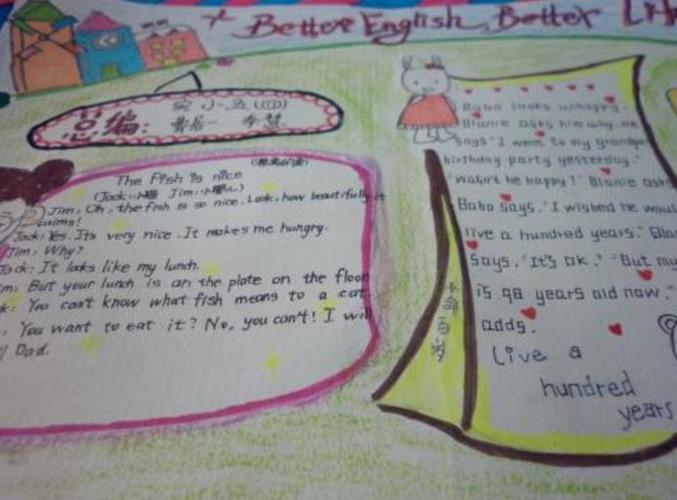 Better English, Better Lif
总编:
The fish is nice
(Jack:小猫 Jim:小
Jim: Oh, the fish is so nice. Look, how beautifully it
swims!
Jack: Yes. Its very nice. It makes me hungry.
Jim: Why?
Jack: It looks like my lunch.
im: But your lunch is an the plate on the floor
k: You can't know what fish means to a cat.
You want to eat it? No, you can't! I will
Dad.
Baba looks unhappy.
Blanie asks him why. He
says "I went to my grandpa
birthday party yesterday."
"Wasn't he happy?" Blanie asks
Baba says. "I wished he woul
live a hundred years." Blan
says. "It's ok." "But my
is 98 years old now."
adds.
Live a
hundred
years
百岁